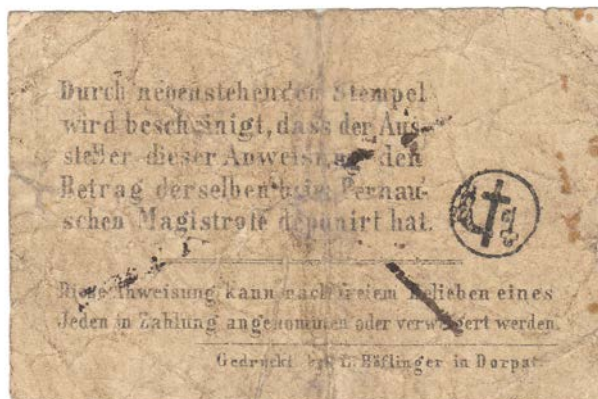 Durch nebenstehenden Stempel
wird bescheinigt, dass der Aus-
steller dieser Anweisung den
Betrag derselben beim Pernau-
schen Magistrote deponirt hat.
Diese Anweisung kann nach freiem Belieben eines
Jeden in Zahlung angenommen oder verweigert werden.
Gedruckt bei E. Höflinger in Dorpat.